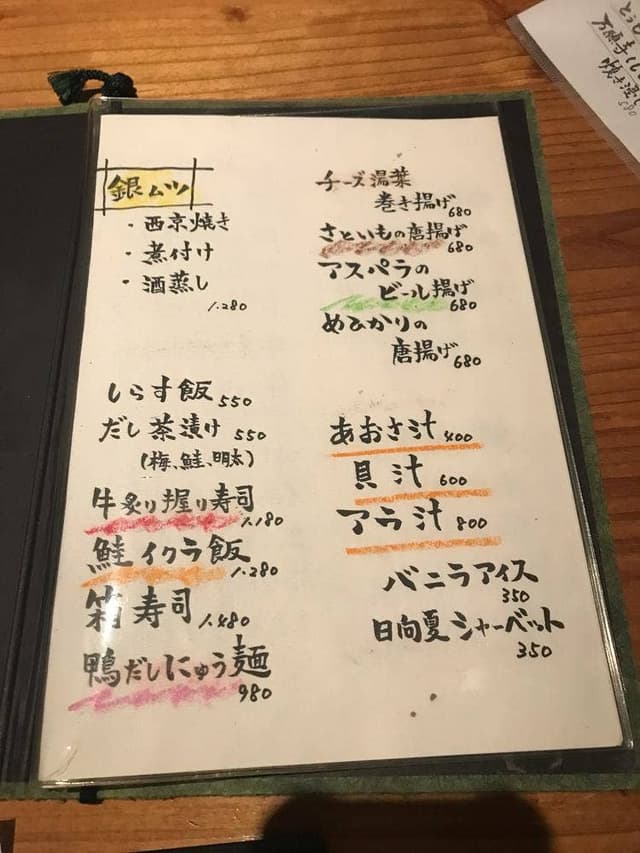 銀ムツ
・西京焼き
・煮付け
・酒蒸し
1.280
しらす飯 550
だし茶漬け 550
(梅、鮭、明太)
牛炙り握り寿司
1.180
鮭イクラ飯
1.280
箱寿司 1.480
鴨だしにゅう麺
980
チーズ湯葉
巻き揚げ 680
さといもの唐揚げ
680
アスパラの
ビール揚げ
680
めひかりの
唐揚げ 680
あおさ汁 400
貝汁 600
アラ汁 800
バニラアイス
350
日向夏シャーベット
350
万願寺
焼き
580